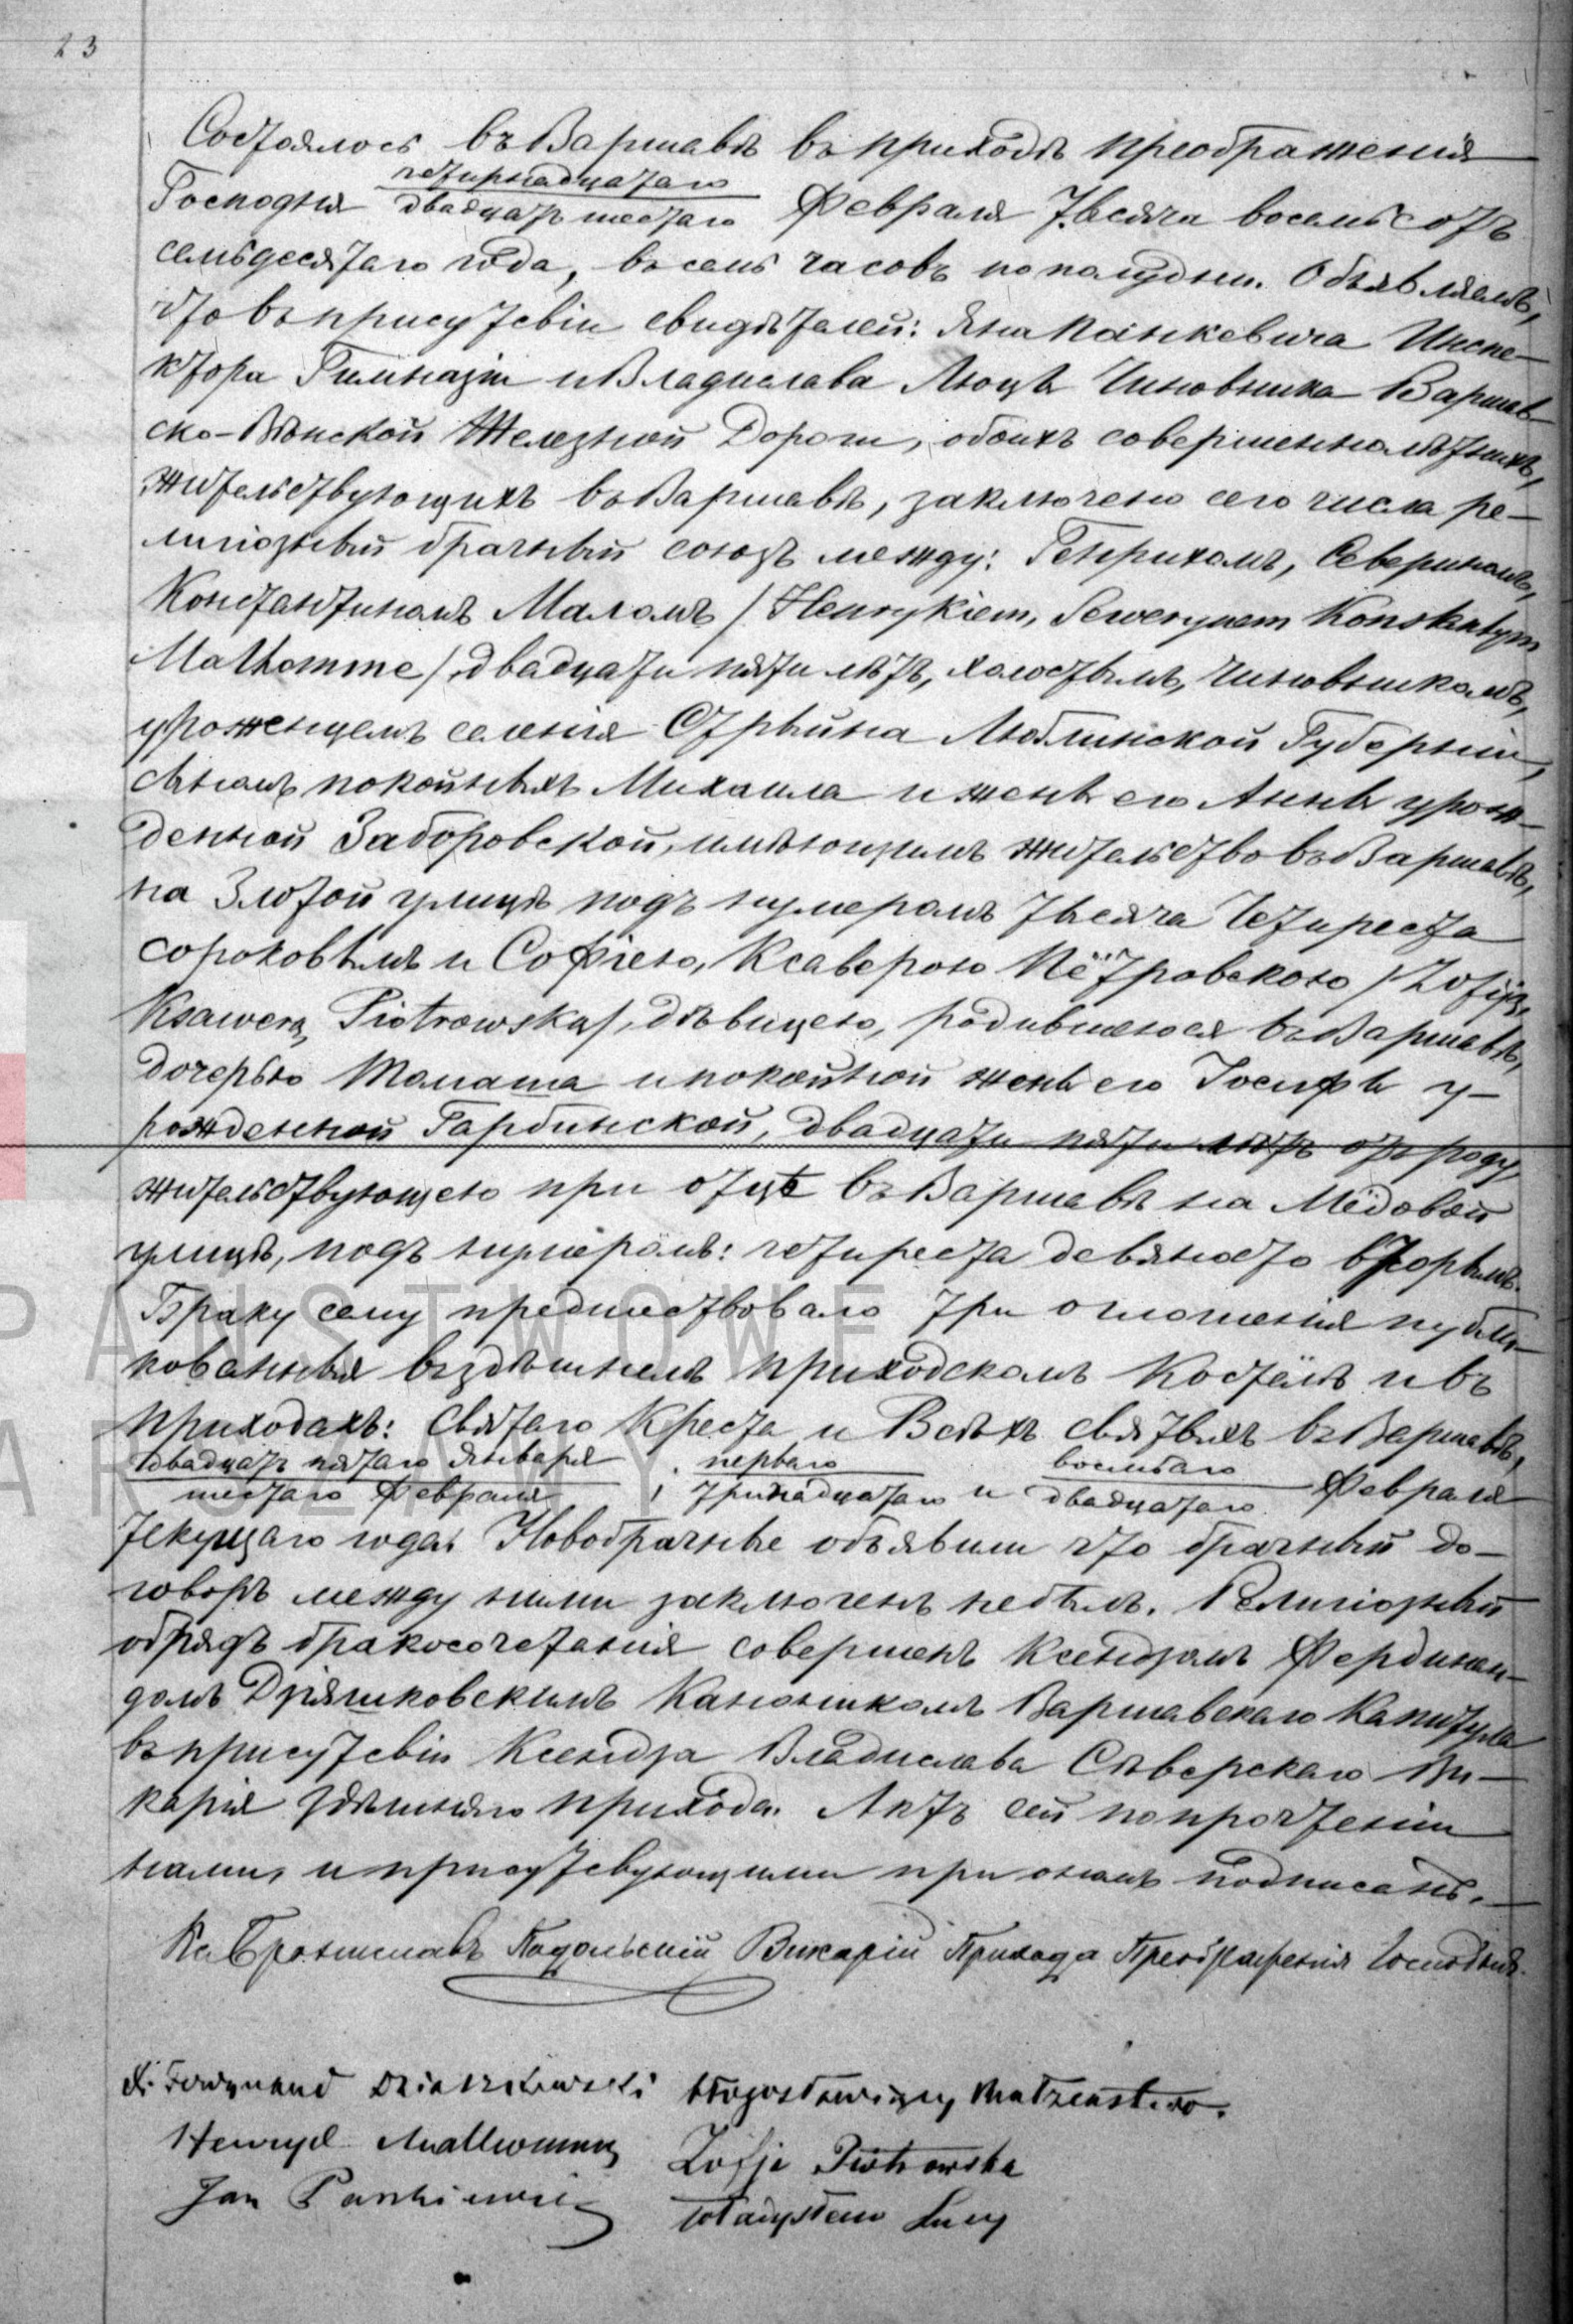 23
Состоялось въ Варшавѣ въ приходѣ Преображенія
четырнадцатаго
Господня двадцать шестаго Февраля тысяча восемьсотъ
семьдесятаго года, въ семь часовъ по полудни. Объявляемъ,
что въ присутствіи свидѣтелей: Яна Панкевича Инспе-
ктора Гимназіи и Владислава Люцы Чиновника Варшав-
ско-Вѣнской Желѣзной Дороги, обоихъ совершеннолѣтнихъ,
жительствующихъ въ Варшавѣ, заключено сего числа ре-
лигіозный брачный союзъ между: Генрихомъ, Севериномъ,
Константиномъ Маломъ /Henrykiem, Sewerynem Konstantym
Malhomme/, двадцати пяти лѣтъ, холостымъ, чиновникомъ,
уроженцемъ селенія Стрыйна Люблинской Губерніи,
сыномъ покойныхъ Михаила и жены его Анны урож-
денной Заборовской, имѣющимъ жительство въ Варшавѣ,
на Злотой улицѣ подъ нумеромъ тысяча четыреста
сороковымъ и Софіею, Ксаверою Пётровскою /Zofiją,
Ksawerą Piotrowską/, дѣвицею, родившеюся въ Варшавѣ,
дочерью Томаша и покойной жены его Іосифы у-
рожденной Гарбинской, двадцати пяти лѣтъ отъ роду,
жительствующею при отцѣ въ Варшавѣ на Мёдовой
улицѣ, подъ нумеромъ: четыреста девяносто вторымъ.
Браку сему предшествовало три оглашенія публи-
кованныя въ здѣшнемъ приходскомъ Костёлѣ и въ
приходахъ: Святаго Креста и Всѣхъ Святыхъ въ Варшавѣ,
двадцать пятаго Января первaго восьмаго
шестаго Февраля , тринадцатаго и двадцатаго Февраля
текущаго года. Новобрачные объявили что брачный до-
говоръ между ними заключенъ небылъ. Религіозный
обрядъ бракосочетанія совершенъ Ксендзомъ Фердинан-
домъ Дзяшковскимъ Каноникомъ Варшавскаго Капитула
въ присутствіи Ксендза Владислава Сѣверскаго Ви-
карія здѣшняго прихода. Актъ сей по прочтеніи
нами, и присутствующими при ономъ подписанъ.
Кс. Брониславъ Подольскій Викарій Прихода Преображенія Господня.
X. Ferdynand Dziaszkowski błogosławiący Małżeństwo.
Henryk Malhomme Zofja Piotrowska
Jan Pankiewicz Władysław Lucy
PAŃSTWOWE
WARSZAWY